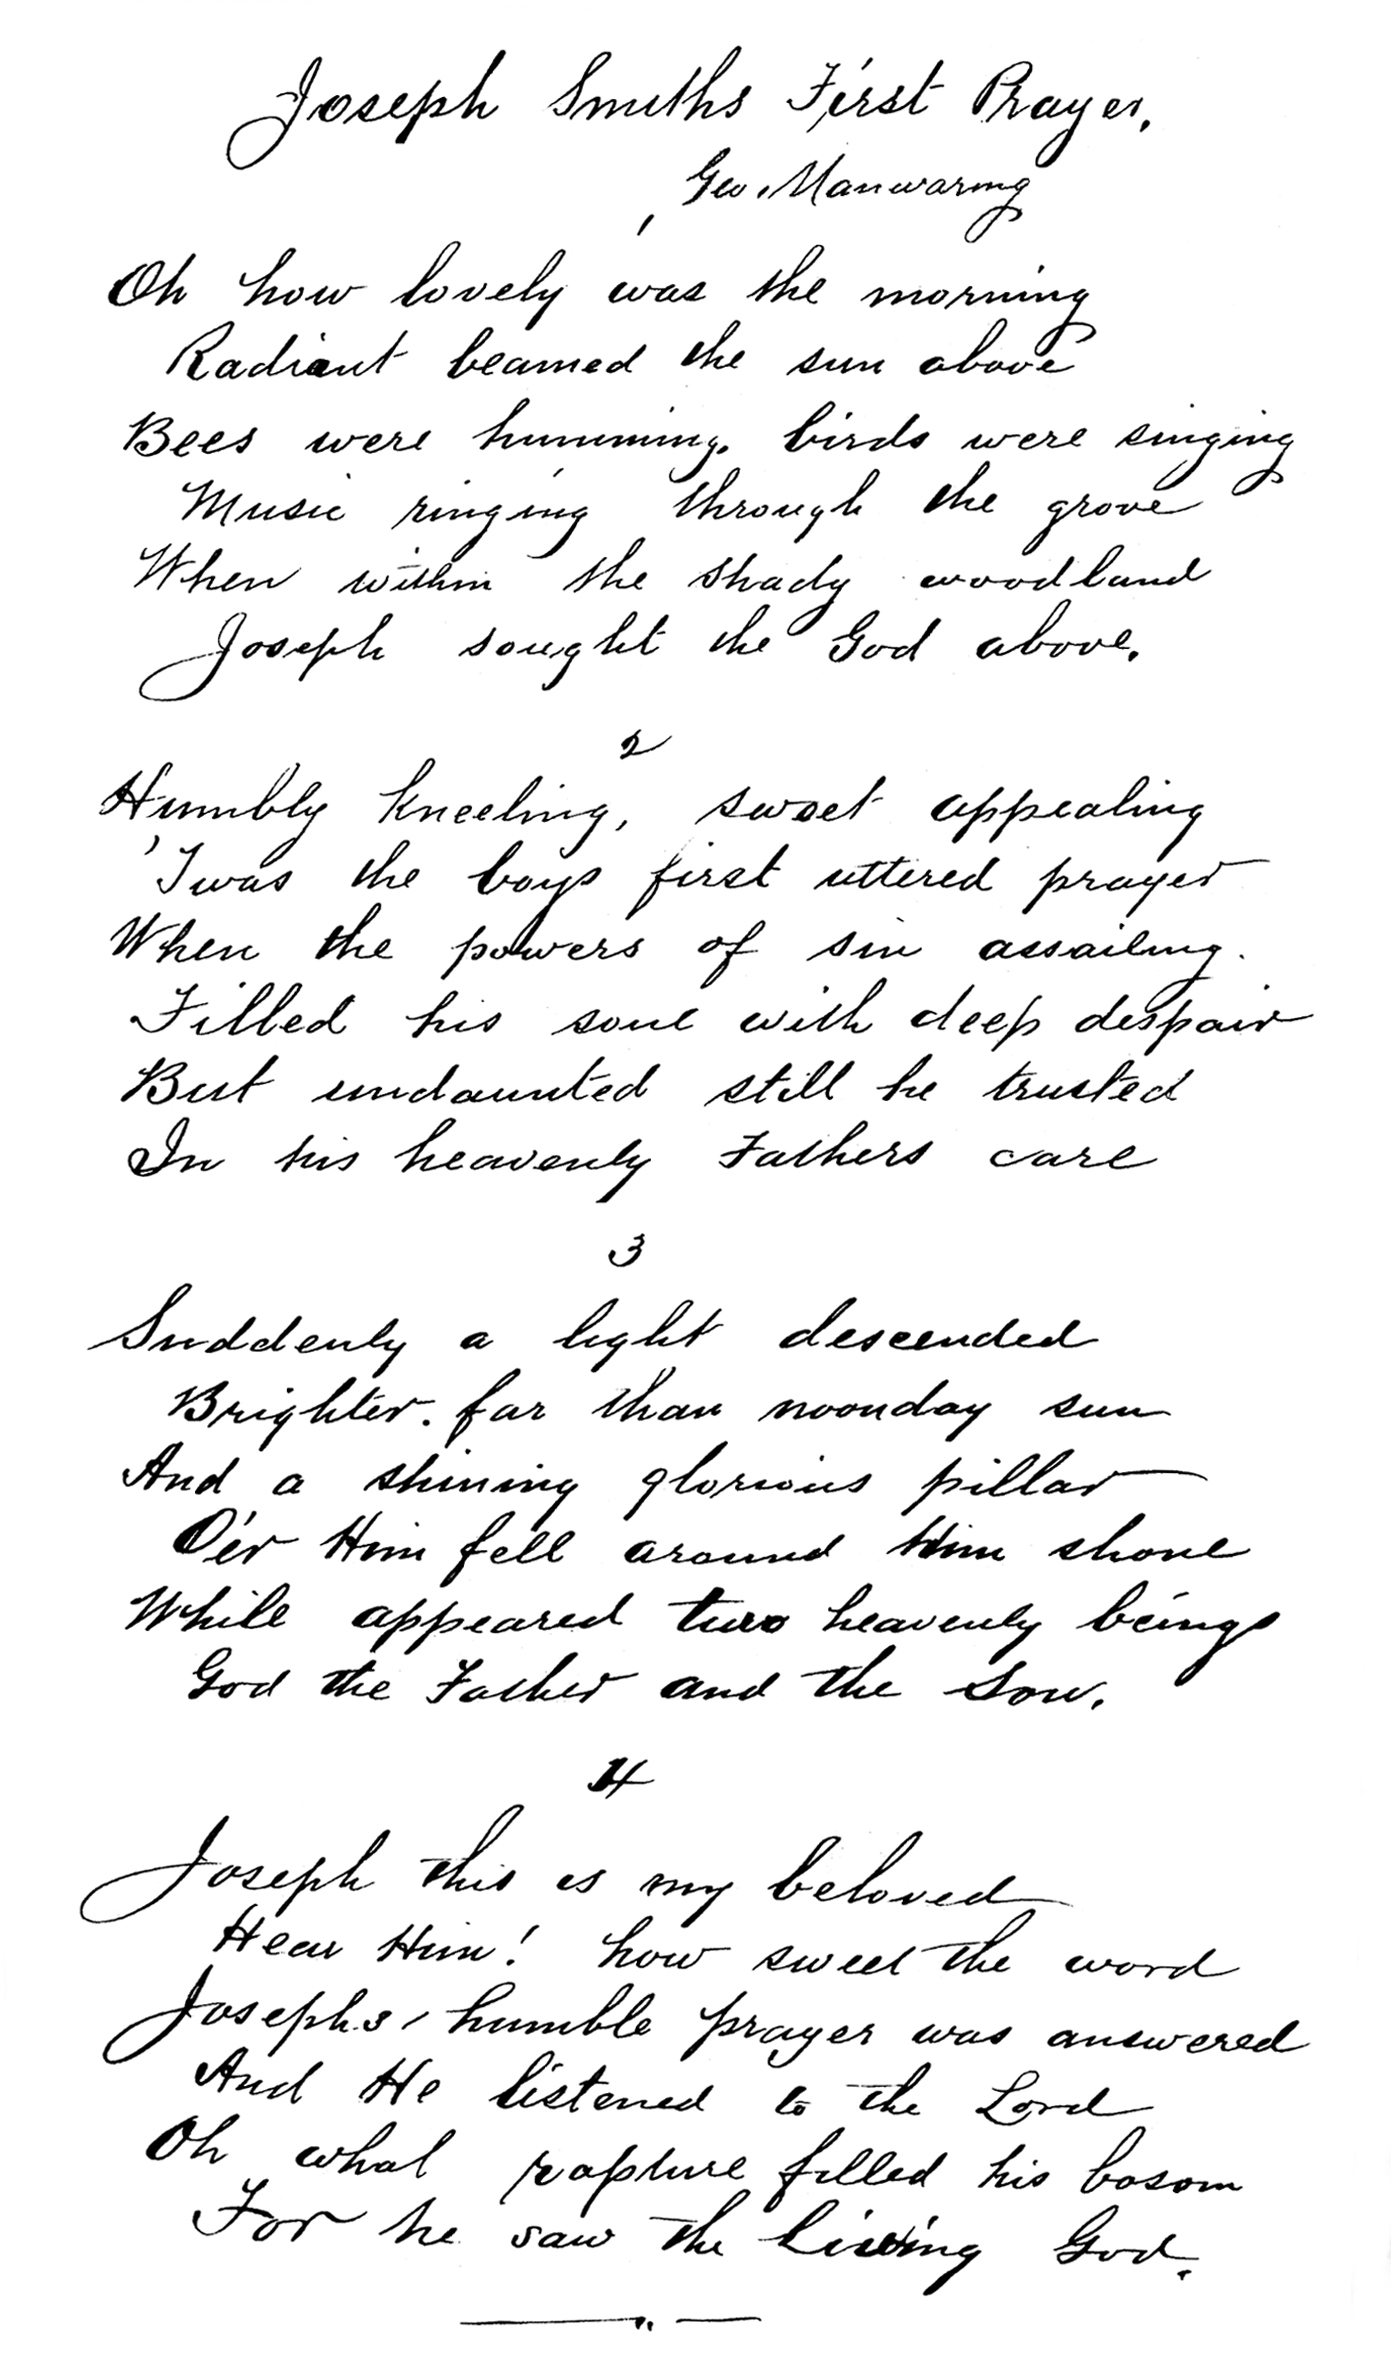 Joseph Smiths First Prayer.
Geo. Manwaring
Oh how lovely was the morning
Radiant beamed the sun above
Bees were humming. birds were singing
Music ringing through the grove
When within the shady woodland
Joseph sought the God above.
2
Humbly kneeling, sweet appealing
'Twas the boys first uttered prayer
When the powers of sin assailing.
Filled his soul with deep despair
But undaunted still he trusted
In his heavenly Fathers care
3
Suddenly a light descended
Brighter. far than noonday sun
And a shining glorious pillar
O'er Him fell around Him shone
While appeared two heavenly beings
God the Father and the Son.
4
Joseph this is my beloved
Hear Him! how sweet the word
Josephs, humble prayer was answered
And He listened to the Lord
Oh what rapture filled his bosom
For he saw the living God.